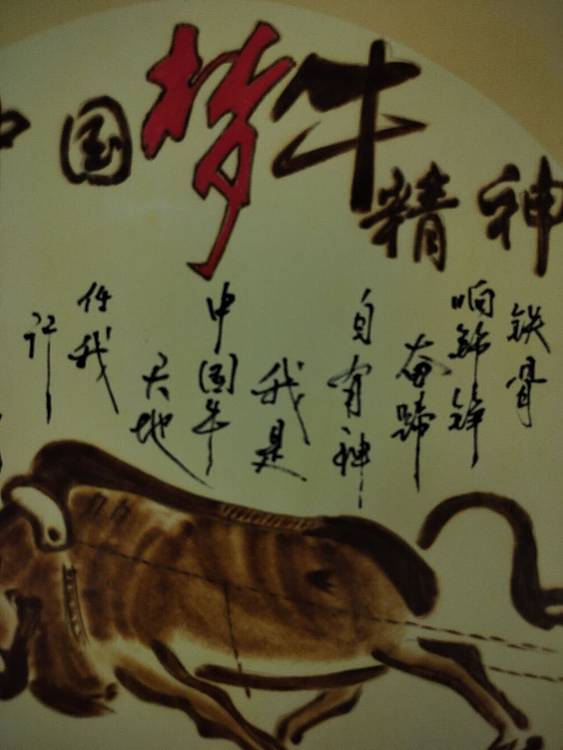 中国梦牛精神
铁骨
响铮铮
奋蹄
自有神
我是
中国牛
天地
任我
行